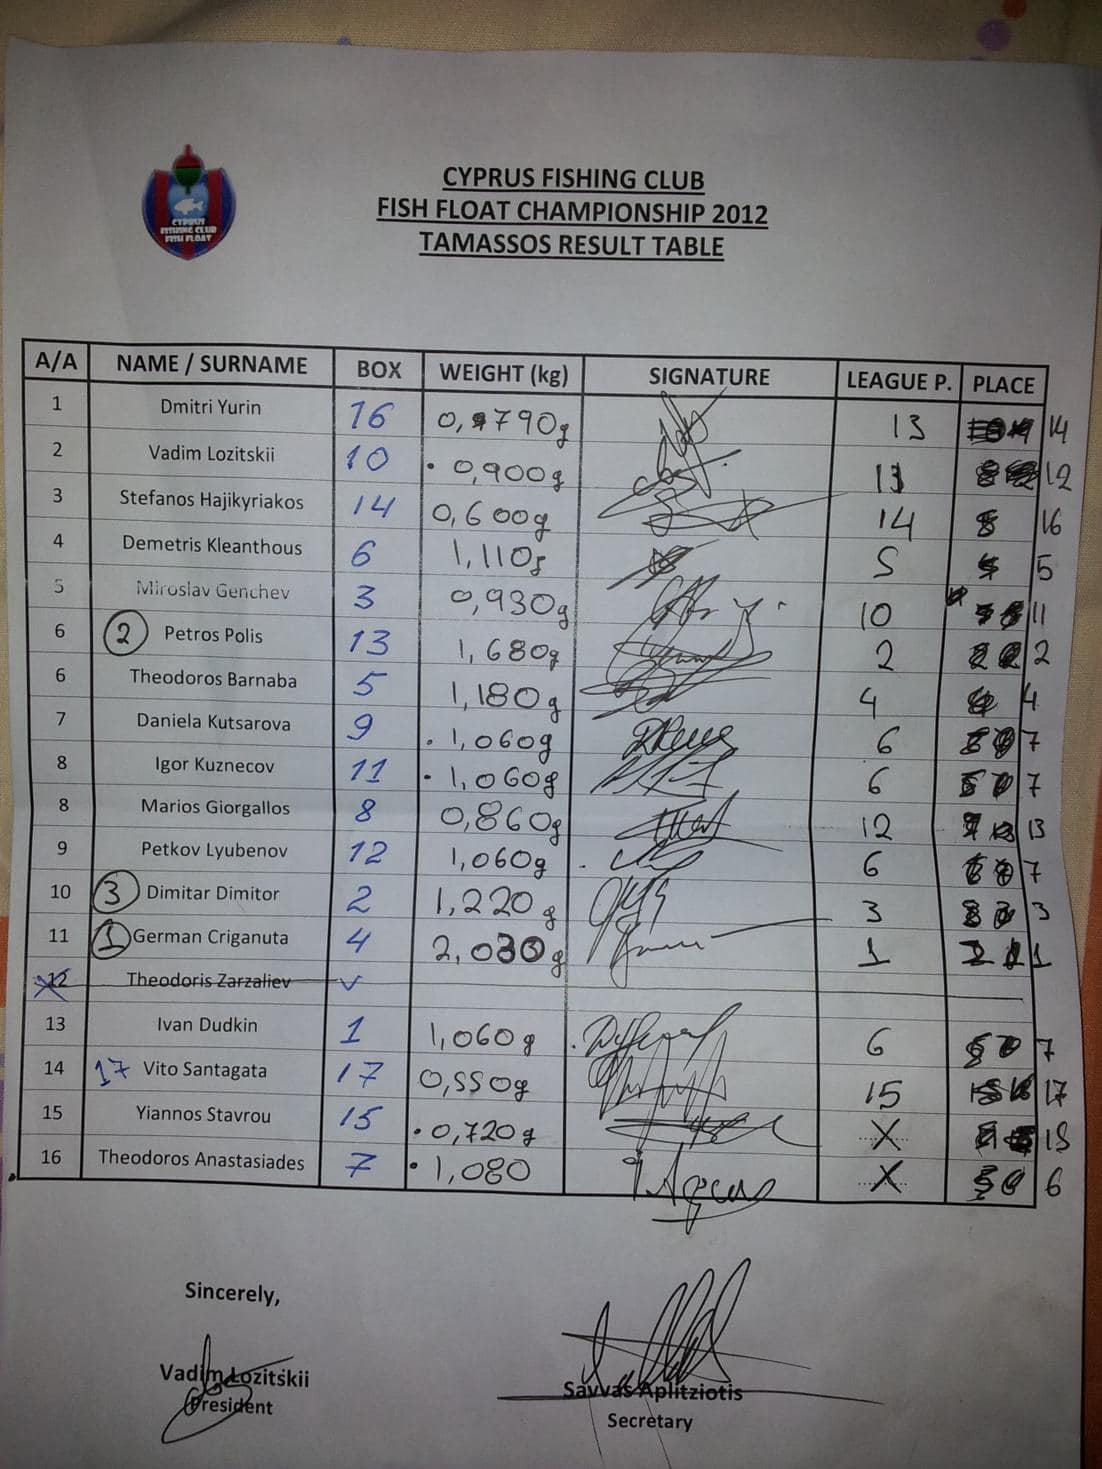 CYPRUS FISHING CLUB
FISH FLOAT CHAMPIONSHIP 2012
TAMASSOS RESULT TABLE
CYPRUS
FISHING CLUB
FISH FLOAT
A/A NAME / SURNAME BOX WEIGHT (kg) SIGNATURE LEAGUE P. PLACE
1 Dmitri Yurin 16 0,790g 13 14
2 Vadim Lozitskii 10 0,900g 11 12
3 Stefanos Hajikyriakos 14 0,600g 14 16
4 Demetris Kleanthous 6 1,110g 5 5
5 Miroslav Genchev 3 0,930g 10 11
6 2 Petros Polis 13 1,680g 2 2
6 Theodoros Barnaba 5 1,180g 4 4
7 Daniela Kutsarova 9 1,060g 6 7
8 Igor Kuznecov 11 1,060g 6 7
8 Marios Giorgallos 8 0,860g 12 13
9 Petkov Lyubenov 12 1,060g 6 7
10 3 Dimitar Dimitor 2 1,220g 3 3
11 1 German Criganuta 4 2,030g 1 1
12 Theodoris Zarzaliev
13 Ivan Dudkin 1 1,060g 6 7
14 17 Vito Santagata 17 0,550g 15 17
15 Yiannos Stavrou 15 0,720g X 15
16 Theodoros Anastasiades 7 1,080 X 6
Sincerely,
Vadim Lozitskii
President
Savvas Aplitziotis
Secretary